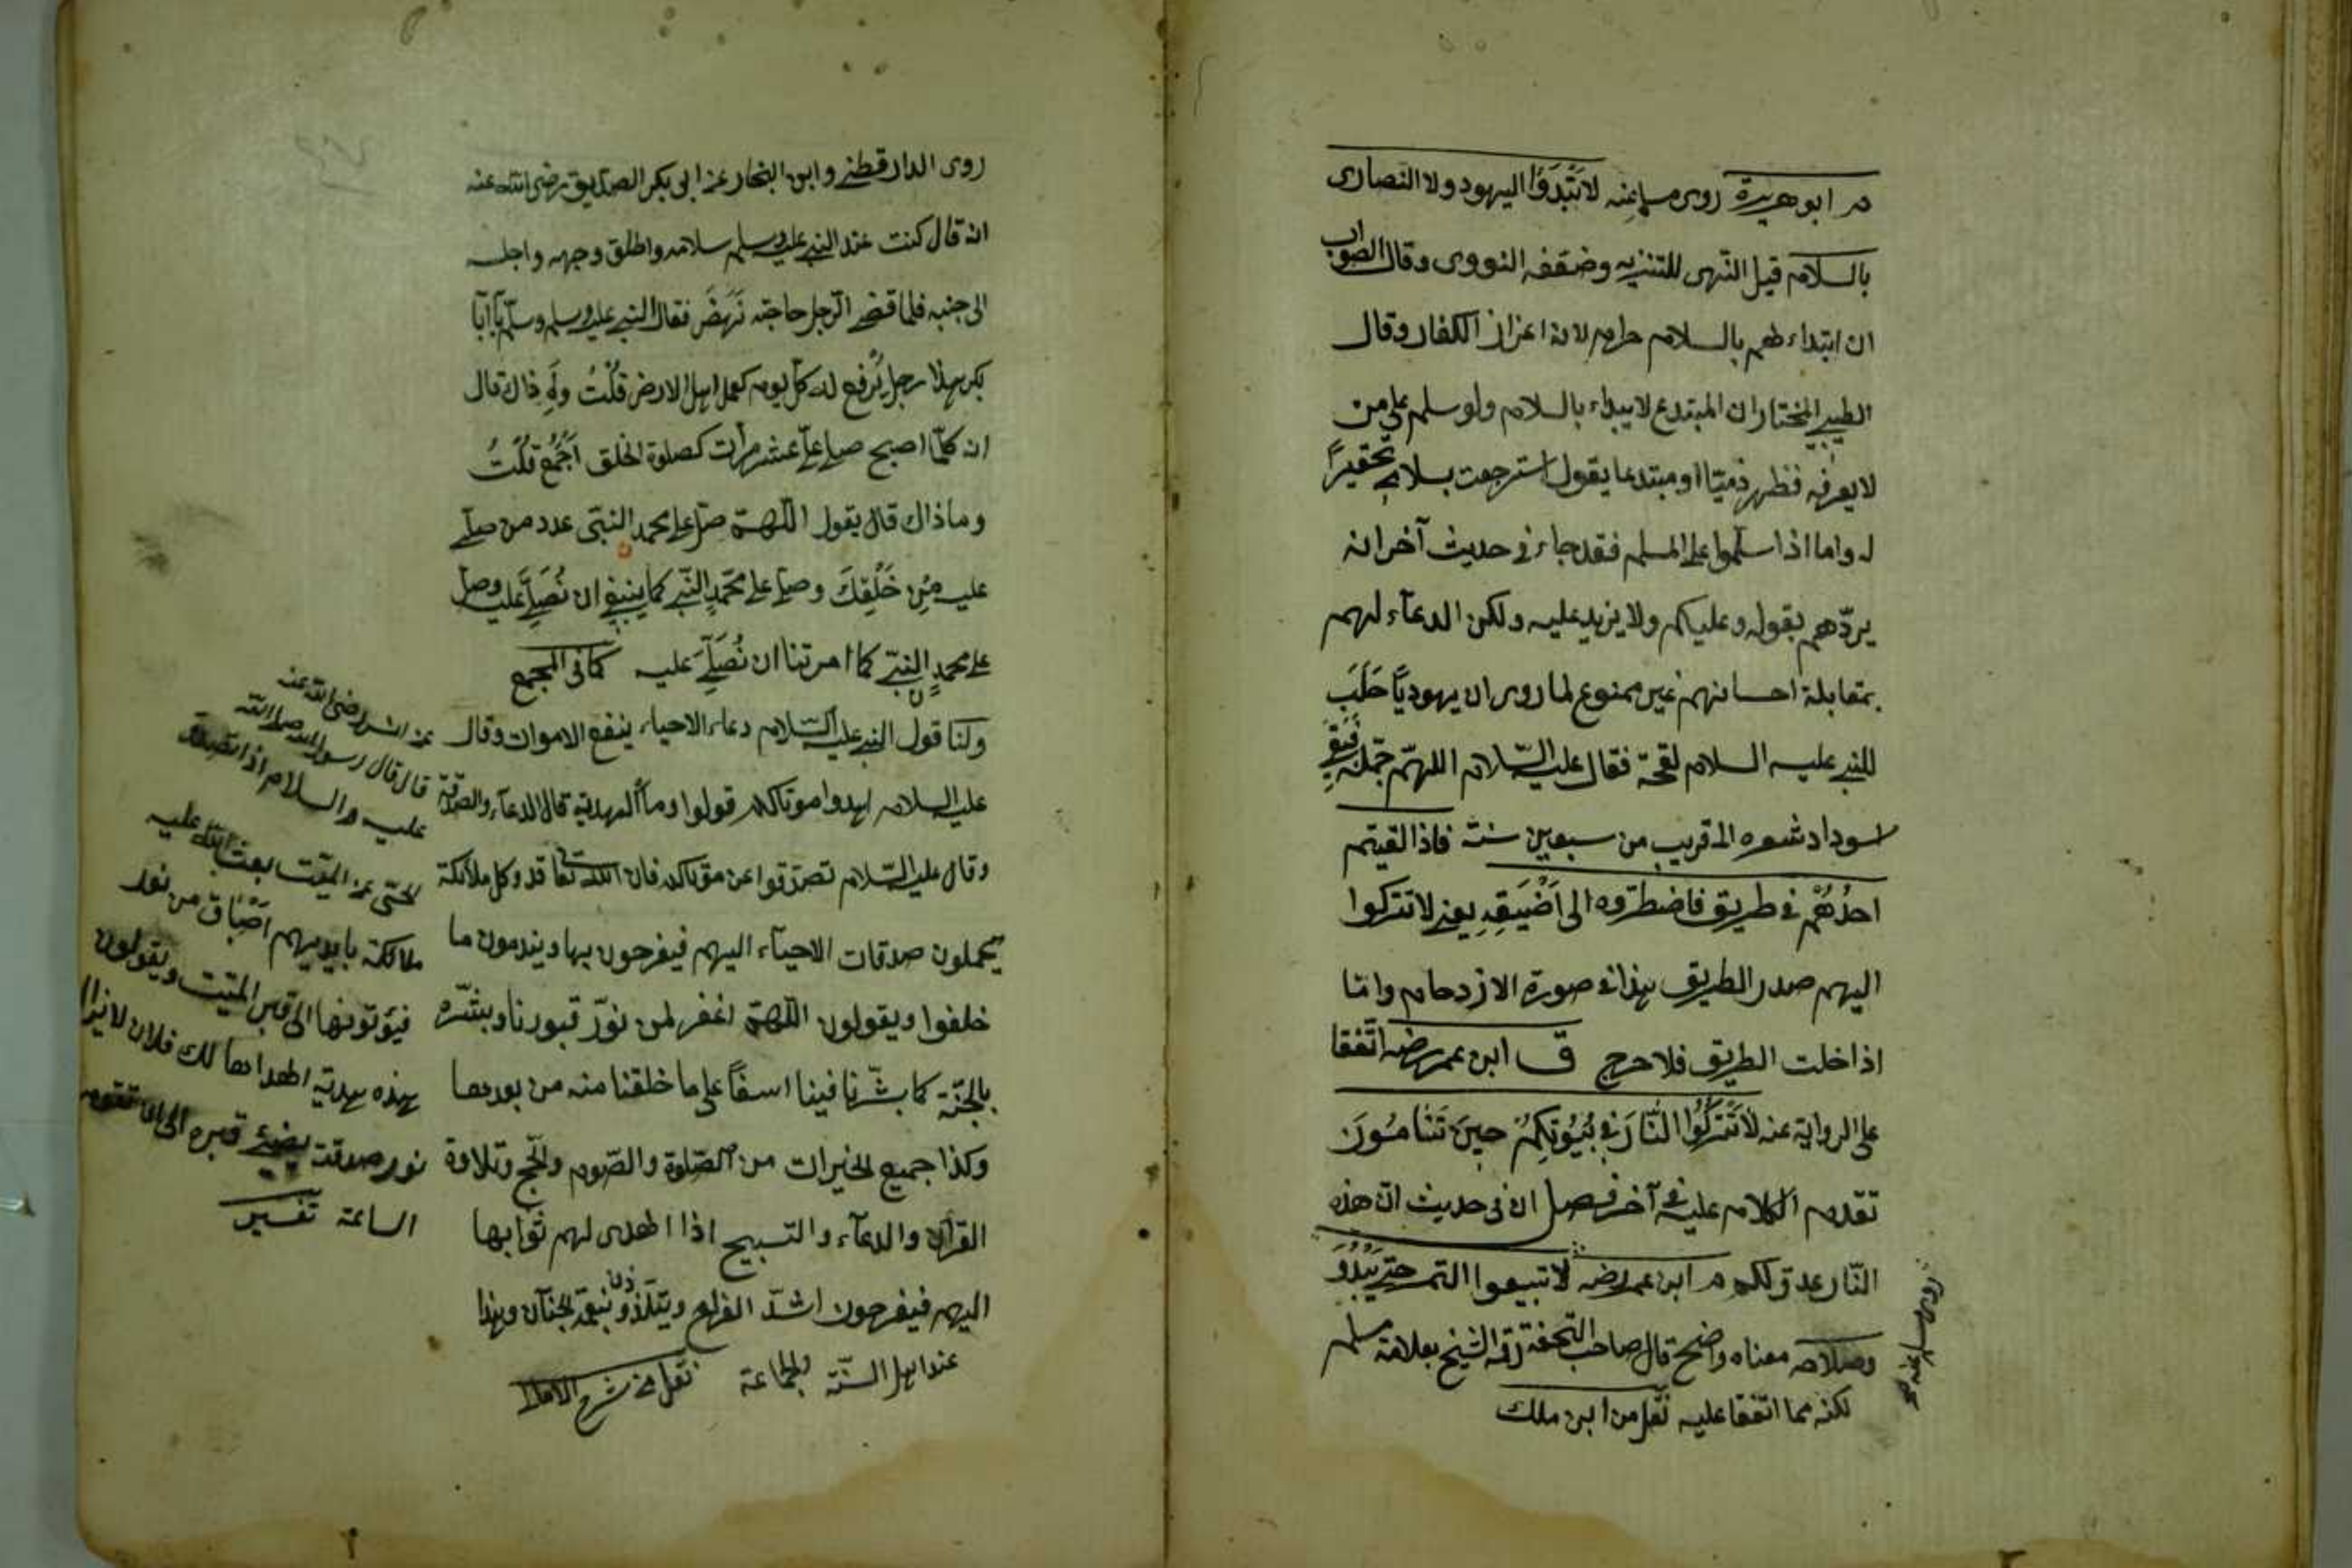 م ابو هريرة روى مسلم عنه لا تَبْتَدَؤُا اليهود ولا النصارى
بالسلام قيل النّهى للتنزيه وضعّفه النووى وقال الصواب
ان ابتداءهم بالسلام حرام لانه اعزاز الكفار وقال
الطيبى المختار ان المبتدع لا يبداء بالسلام ولو سلم على من
لا يعرفه فظهر ذميّا او مبتدعا يقول استرجعت بسلامى تحقيرًا
له واما اذا سلّموا على المسلم فقد جاء فى حديث آخر انه
يردّهم بقوله وعليكم ولا يزيد عليه ولكن الدعآء لهم
بمقابلة احسانهم غير ممنوع لما روى ان يهوديًّا حَلَبَ
للنبى عليه السلام لقحة فقال عليه السّلام اللهمّ جمّله فَبَقِىَ
اسوداد شعره الى قريب من سبعين سنة فاذا لقيتم
احدُهُمْ فى طريق فاضطرّوه الى اَضْيَقِهِ يعنى لا تتركوا
اليهم صدر الطريق هذا فى صورة الازدحام وامّا
اذا خلت الطريق فلا حرج ق ابن عمر رضه اتّفقا
على الرواية عنه لا تَتْرُكُوا النَّارَ فى بُيُوتِكُمْ حينَ تَنَامُونَ
تقدّم الكلام عليه فى آخر فصل ان فى حديث انّ هذه
النّار عدوّ لكم م ابن عمر رضه لا تبيعوا الثمر حتى يَبْدُوَ
وصلاحه معناه واضح قال صاحب التحفة رقه الشيخ بعلامة مسلم
لكنه مما اتّفقا عليه نقل من ابن ملك
روى مسلم عنه
روى الدارقطنى وابن النجار عن ابى بكر الصدّيق رضى الله عنه
انه قال كنت عند النبى عليه وسلم سلامه واطلق وجهه واجلسه
الى جنبه فلما قضى الرّجل حاجته نَهَضَ فقال النبى عليه وسلم يا ابا
بكر هذا رجل يُرفع له كلّ يوم كعمل اهل الارض قُلْتُ ولِمَ ذاك قال
انه كلّما اصبح صلى علىّ عشر مرات كصلوة الخلق اَجْمَع قُلْتُ
وما ذاك قال يقول اللّهمّ صلّ على محمد النبىّ عدد من صلّى
عليه مِن خَلْقِكَ وصلّ على محمّدٍ النّبىّ كما ينبغى ان نُصَلِّىَ عليه وصلّ
على محمدٍ النبىّ كما امرتنا ان نُصَلِّىَ عليه كما فى المجمع
ولنا قول النبى عليه السّلام دعاء الاحياء ينفع الاموات وقال
عليه السلام اهدوا موتاكم قولوا وما الهدية قال الدعآء والصدقة
وقال عليه السّلام تصدّقوا عن موتاكم فان الله تعالى قد وكل ملائكة
يحملون صدقات الاحيآء اليهم فيفرحون بها ويندمون ما
خلفوا ويقولون اللّهمّ اغفر لمن نوّر قبورنا وبشّره
بالجنّة كما بشّرنا فينا اسفًا على ما خلقنا منه من بعدها
وكذا جميع الخيرات من الصّلوة والصّوم والحّج وتلاوة
القرآن والدعآء والتسبيح اذا اهدى لهم ثوابها
اليهم فيفرحون اشدّ الفرح ويتلذذون بنعمة الجنان وهذا
عند اهل السنّة والجماعة نقل من شرح الامالى
عن انس رضى الله عنه
قال قال رسول الله صلى الله
عليه والسلام اذا تصدّق
الحىّ عن الميّت بعث الله عليه
ملائكة بايديهم اطباق من نور
فيؤتونها الى قبر الميّت ويقولون
هذه هدية اهداها لك فلان لا يزال
نور صدقته يضئ قبره الى ان تقوم
الساعة تفسير